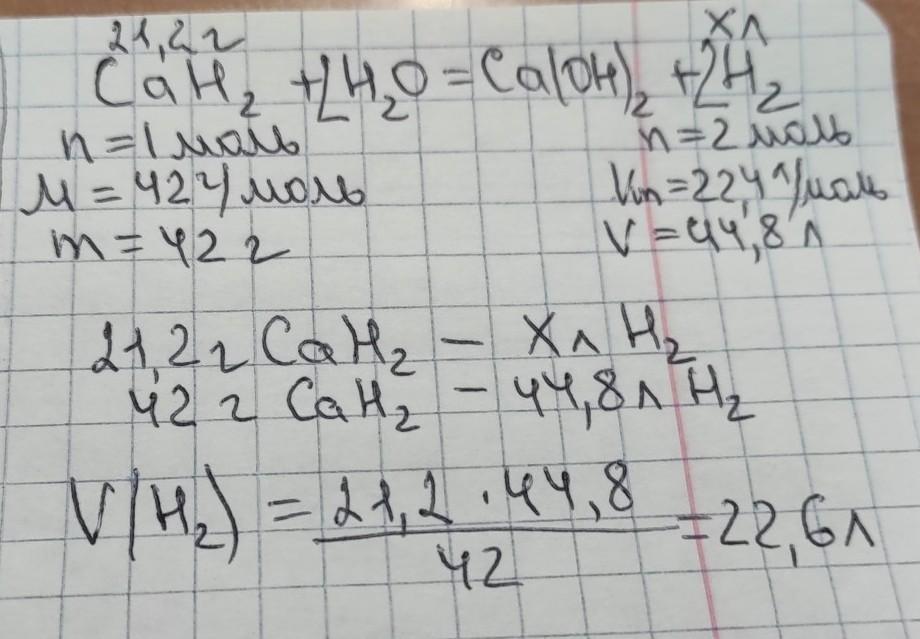 21,2 г Xл
CaH₂ + 2H₂O = Ca(OH)₂ + 2H₂
n = 1 моль n = 2 моль
M = 42 г/моль Vm = 22,4 л/моль
m = 42 г V = 44,8 л
21,2 г CaH₂ – Xл H₂
42 г CaH₂ – 44,8 л H₂
V(H₂) = 21,2 · 44,8 / 42 = 22,6 л